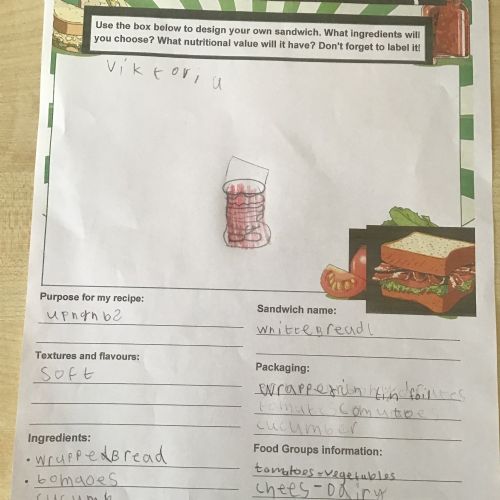 Use the box below to design your own sandwich. What ingredients will
you choose? What nutritional value will it have? Don't forget to label it!
Viktor, u
Purpose for my recipe:
Sandwich name:
WhitteBreadl
Textures and flavours:
Soft
Packaging:
wrapped in tin foil
cucumber
Ingredients:
• wrappedBread
• bomaoes
cucumb
Food Groups information:
tomatoes-vegetables
chees-Dairy